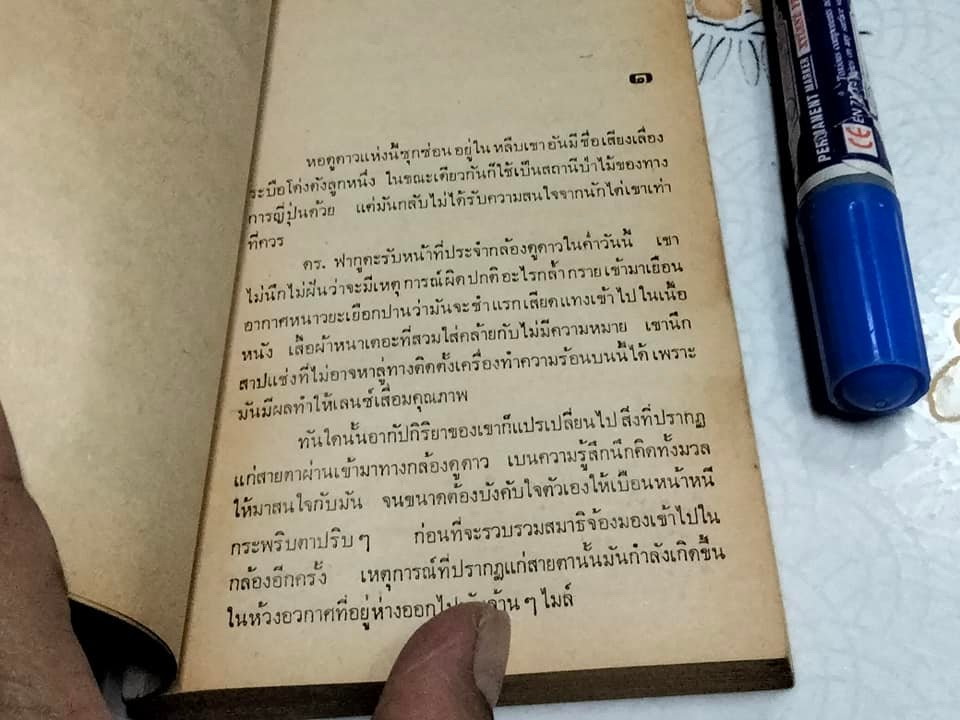 ๑
หอดูดาวแห่งนี้ซุกซ่อนอยู่ในหลืบเขาอันมีชื่อเสียงเลื่อง
ระบือโด่งดังลูกหนึ่ง ในขณะเดียวกันก็ใช้เป็นสถานีป่าไม้ของทาง
การญี่ปุ่นด้วย แต่มันกลับไม่ได้รับความสนใจจากนักไต่เขาเท่า
ที่ควร
ดร. ฟากูดะรับหน้าที่ประจำกล้องดูดาวในค่ำวันนี้ เขา
ไม่นึกไม่ฝันว่าจะมีเหตุการณ์ผิดปกติอะไรกล้ำกรายเข้ามาเยือน
อากาศหนาวยะเยือกปานว่ามันจะชำแรกเสียดแทงเข้าไปในเนื้อ
หนัง เสื้อผ้าหนาเตอะที่สวมใส่คล้ายกับไม่มีความหมาย เขานึก
สาปแช่งที่ไม่อาจหาลู่ทางติดตั้งเครื่องทำความร้อนบนนี้ได้ เพราะ
มันมีผลทำให้เลนซ์เสื่อมคุณภาพ
ทันใดนั้นอากัปกิริยาของเขาก็แปรเปลี่ยนไป สิ่งที่ปรากฏ
แก่สายตาผ่านเข้ามาทางกล้องดูดาว เบนความรู้สึกนึกคิดทั้งมวล
ให้มาสนใจกับมัน จนขนาดต้องบังคับใจตัวเองให้เบือนหน้าหนี
กระพริบตาปริบๆ ก่อนที่จะรวบรวมสมาธิจ้องมองเข้าไปใน
กล้องอีกครั้ง เหตุการณ์ที่ปรากฏแก่สายตานั้นมันกำลังเกิดขึ้น
ในห้วงอวกาศที่อยู่ห่างออกไป ๆ ไมล์
PERMANENT MARKER
XYLENE
CE